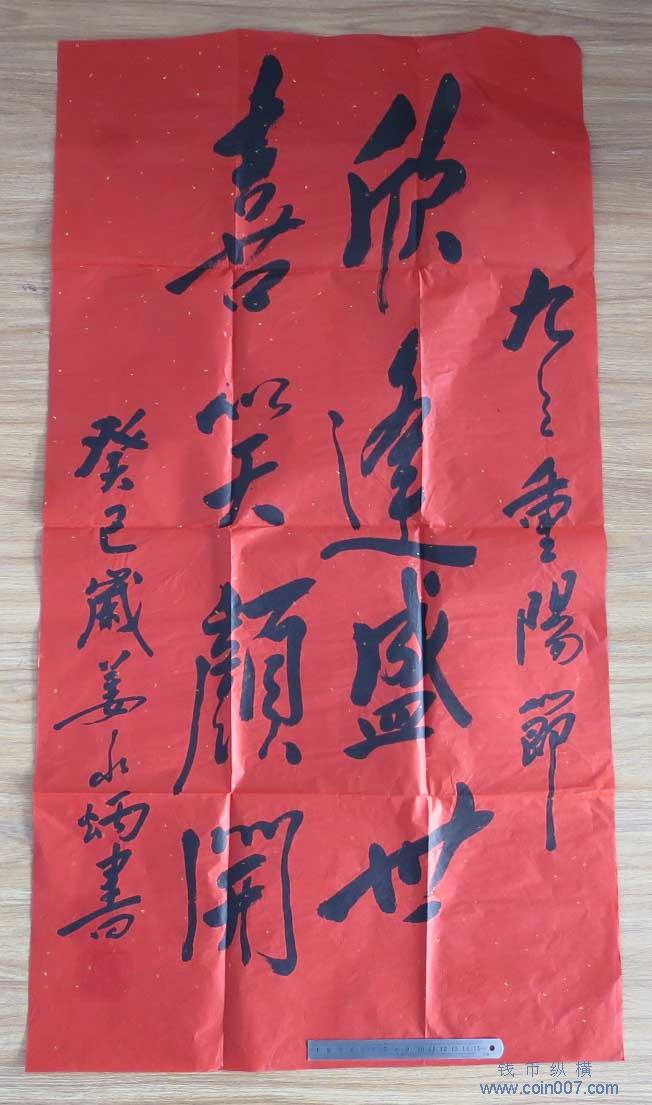 九九重陽節
欣逢盛世
喜笑顏開
癸巳歲姜永炳書
钱币纵横
www.coin007.com